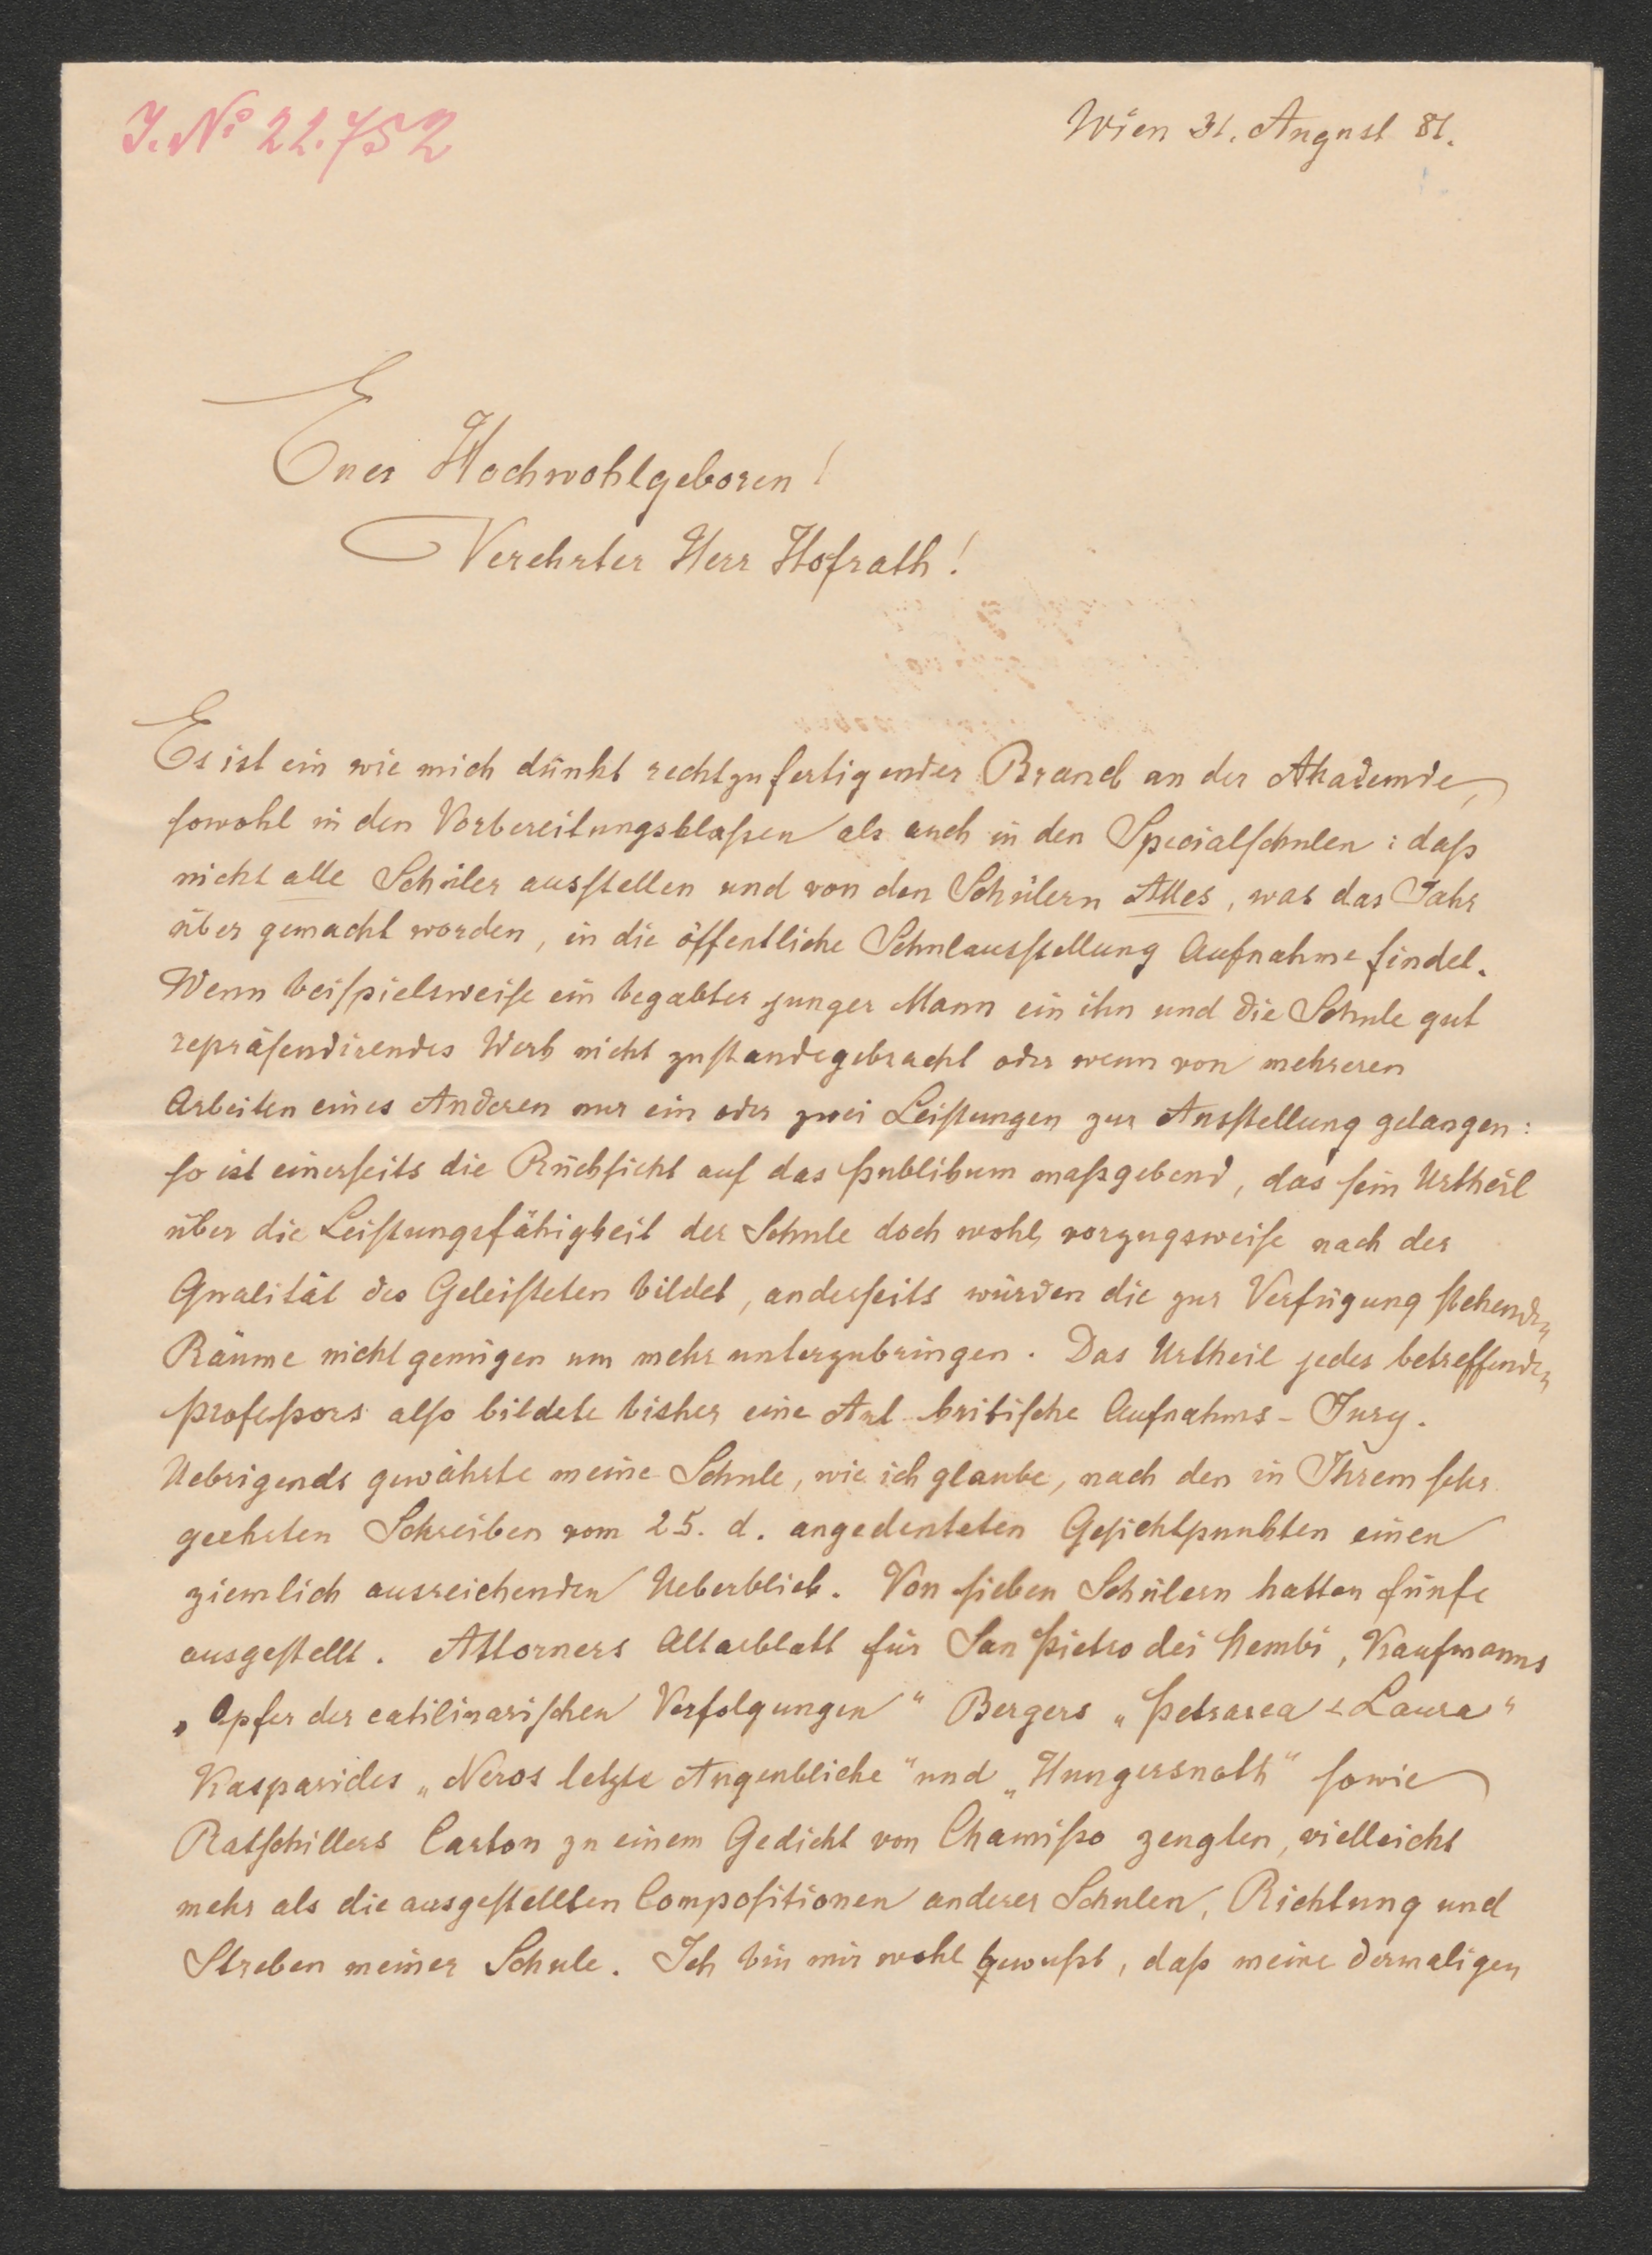 J. No 22.752
Wien 31. August 81.
Euer Hochwohlgeboren!
Verehrter Herr Hofrath!
Es ist ein wie mich dünkt rechtzufertigender Brauch an der Akademie,
sowohl in den Vorbereitungsklaßen als auch in den Specialschulen: daß
nicht alle Schüler ausstellen und von den Schülern Alles, was das Jahr
über gemacht worden, in die öffentliche Schulausstellung Aufnahme findet.
Wenn beispielsweise ein begabter junger Mann ein ihn und die Schule gut
repräsendirendes Werk nicht zustandegebracht oder wenn von mehreren
Arbeiten eines Anderen nur ein oder zwei Leistungen zur Ausstellung gelangen:
so ist einerseits die Rücksicht auf das Publikum maßgebend, das sein Urtheil
über die Leistungsfähigkeit der Schule doch wohl vorzugsweise nach der
Qualität des Geleisteten bildet, anderseits würden die zur Verfügung stehenden
Räume nicht genügen um mehr unterzubringen. Das Urtheil jedes betreffenden
Profeßors also bildete bisher eine Art kritische Aufnahms-Jury.
Uebrigends gewährte meine Schule, wie ich glaube, nach den in Ihrem sehr
geehrten Schreiben vom 25. d. angedeuteten Gesichtpunkten einen
ziemlich ausreichenden Ueberblick. Von sieben Schülern hatten fünfe
ausgestellt. Attorners Altarblatt für San Pietro dei Nembi, Kaufmanns
„Opfer der catilinarischen Verfolgungen" Bergers „Petrarca & Laura"
Kasparides „Neros letzte Augenblicke" und „Hungersnoth" sowie
Ratschillers Carton zu einem Gedicht von Chamißo zeugten, vielleicht
mehr als die ausgestellten Compositionen anderer Schulen, Richtung und
Streben meiner Schule. Ich bin mir wohl bewußt, daß meine dermaligen